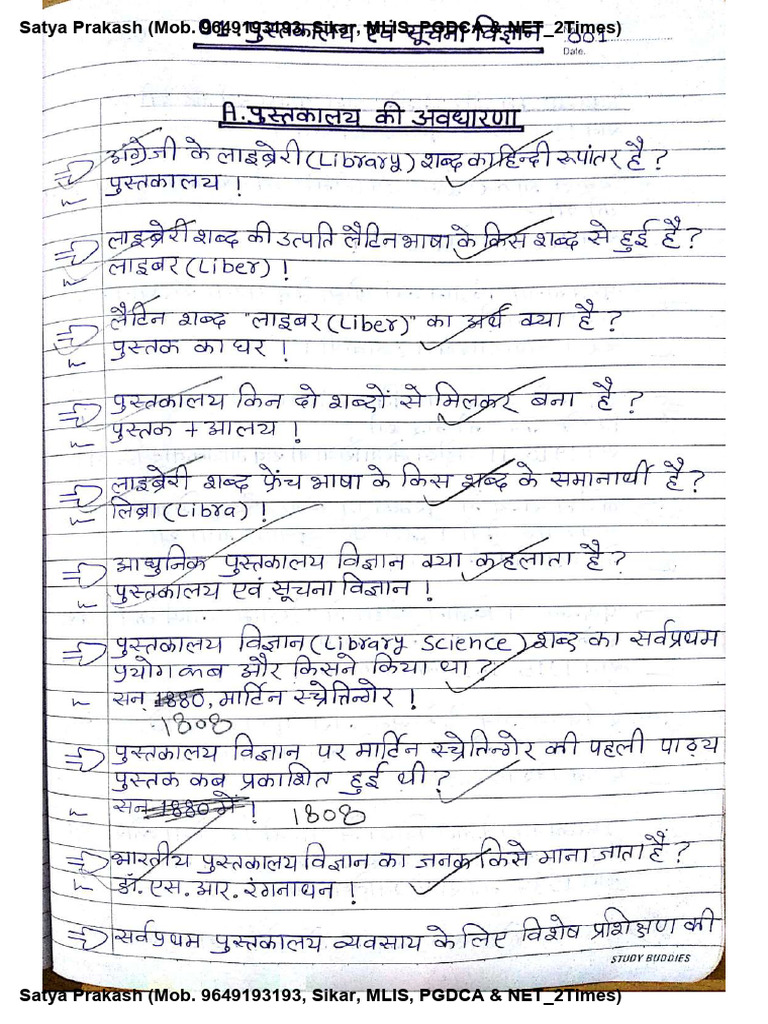 Satya Prakash (Mob. 9649193193, Sikar, MLIS, PGDCA & NET_2Times)
01. पुस्तकालय एवं सूचना विज्ञान - 001
Date.
A. पुस्तकालय की अवधारणा
अंग्रेजी के लाइब्रेरी (Library) शब्द का हिन्दी रूपांतर है ?
पुस्तकालय !
लाइब्रेरी शब्द की उत्पति लैटिन भाषा के किस शब्द से हुई है ?
लाइबर (Liber) !
लैटिन शब्द "लाइबर (Liber)" का अर्थ क्या है ?
पुस्तक का घर !
पुस्तकालय किन दो शब्दों से मिलकर बना है ?
पुस्तक + आलय !
लाइब्रेरी शब्द फ्रेंच भाषा के किस शब्द के समानार्थी है ?
लिब्रा (Libra) !
आधुनिक पुस्तकालय विज्ञान क्या कहलाता है ?
पुस्तकालय एवं सूचना विज्ञान !
पुस्तकालय विज्ञान (Library Science) शब्द का सर्वप्रथम
प्रयोग कब और किसने किया था ?
सन् 1880, मार्टिन स्च्रेतिन्गेर !
1808
पुस्तकालय विज्ञान पर मार्टिन स्च्रेतिन्गेर की पहली पाठ्य
पुस्तक कब प्रकाशित हुई थी ?
सन 1880 में ! 1808
भारतीय पुस्तकालय विज्ञान का जनक किसे माना जाता हैं ?
डॉ. एस. आर. रंगनाथन !
सर्वप्रथम पुस्तकालय व्यवसाय के लिए विशेष प्रशिक्षण की
STUDY BUDDIES
Satya Prakash (Mob. 9649193193, Sikar, MLIS, PGDCA & NET_2Times)